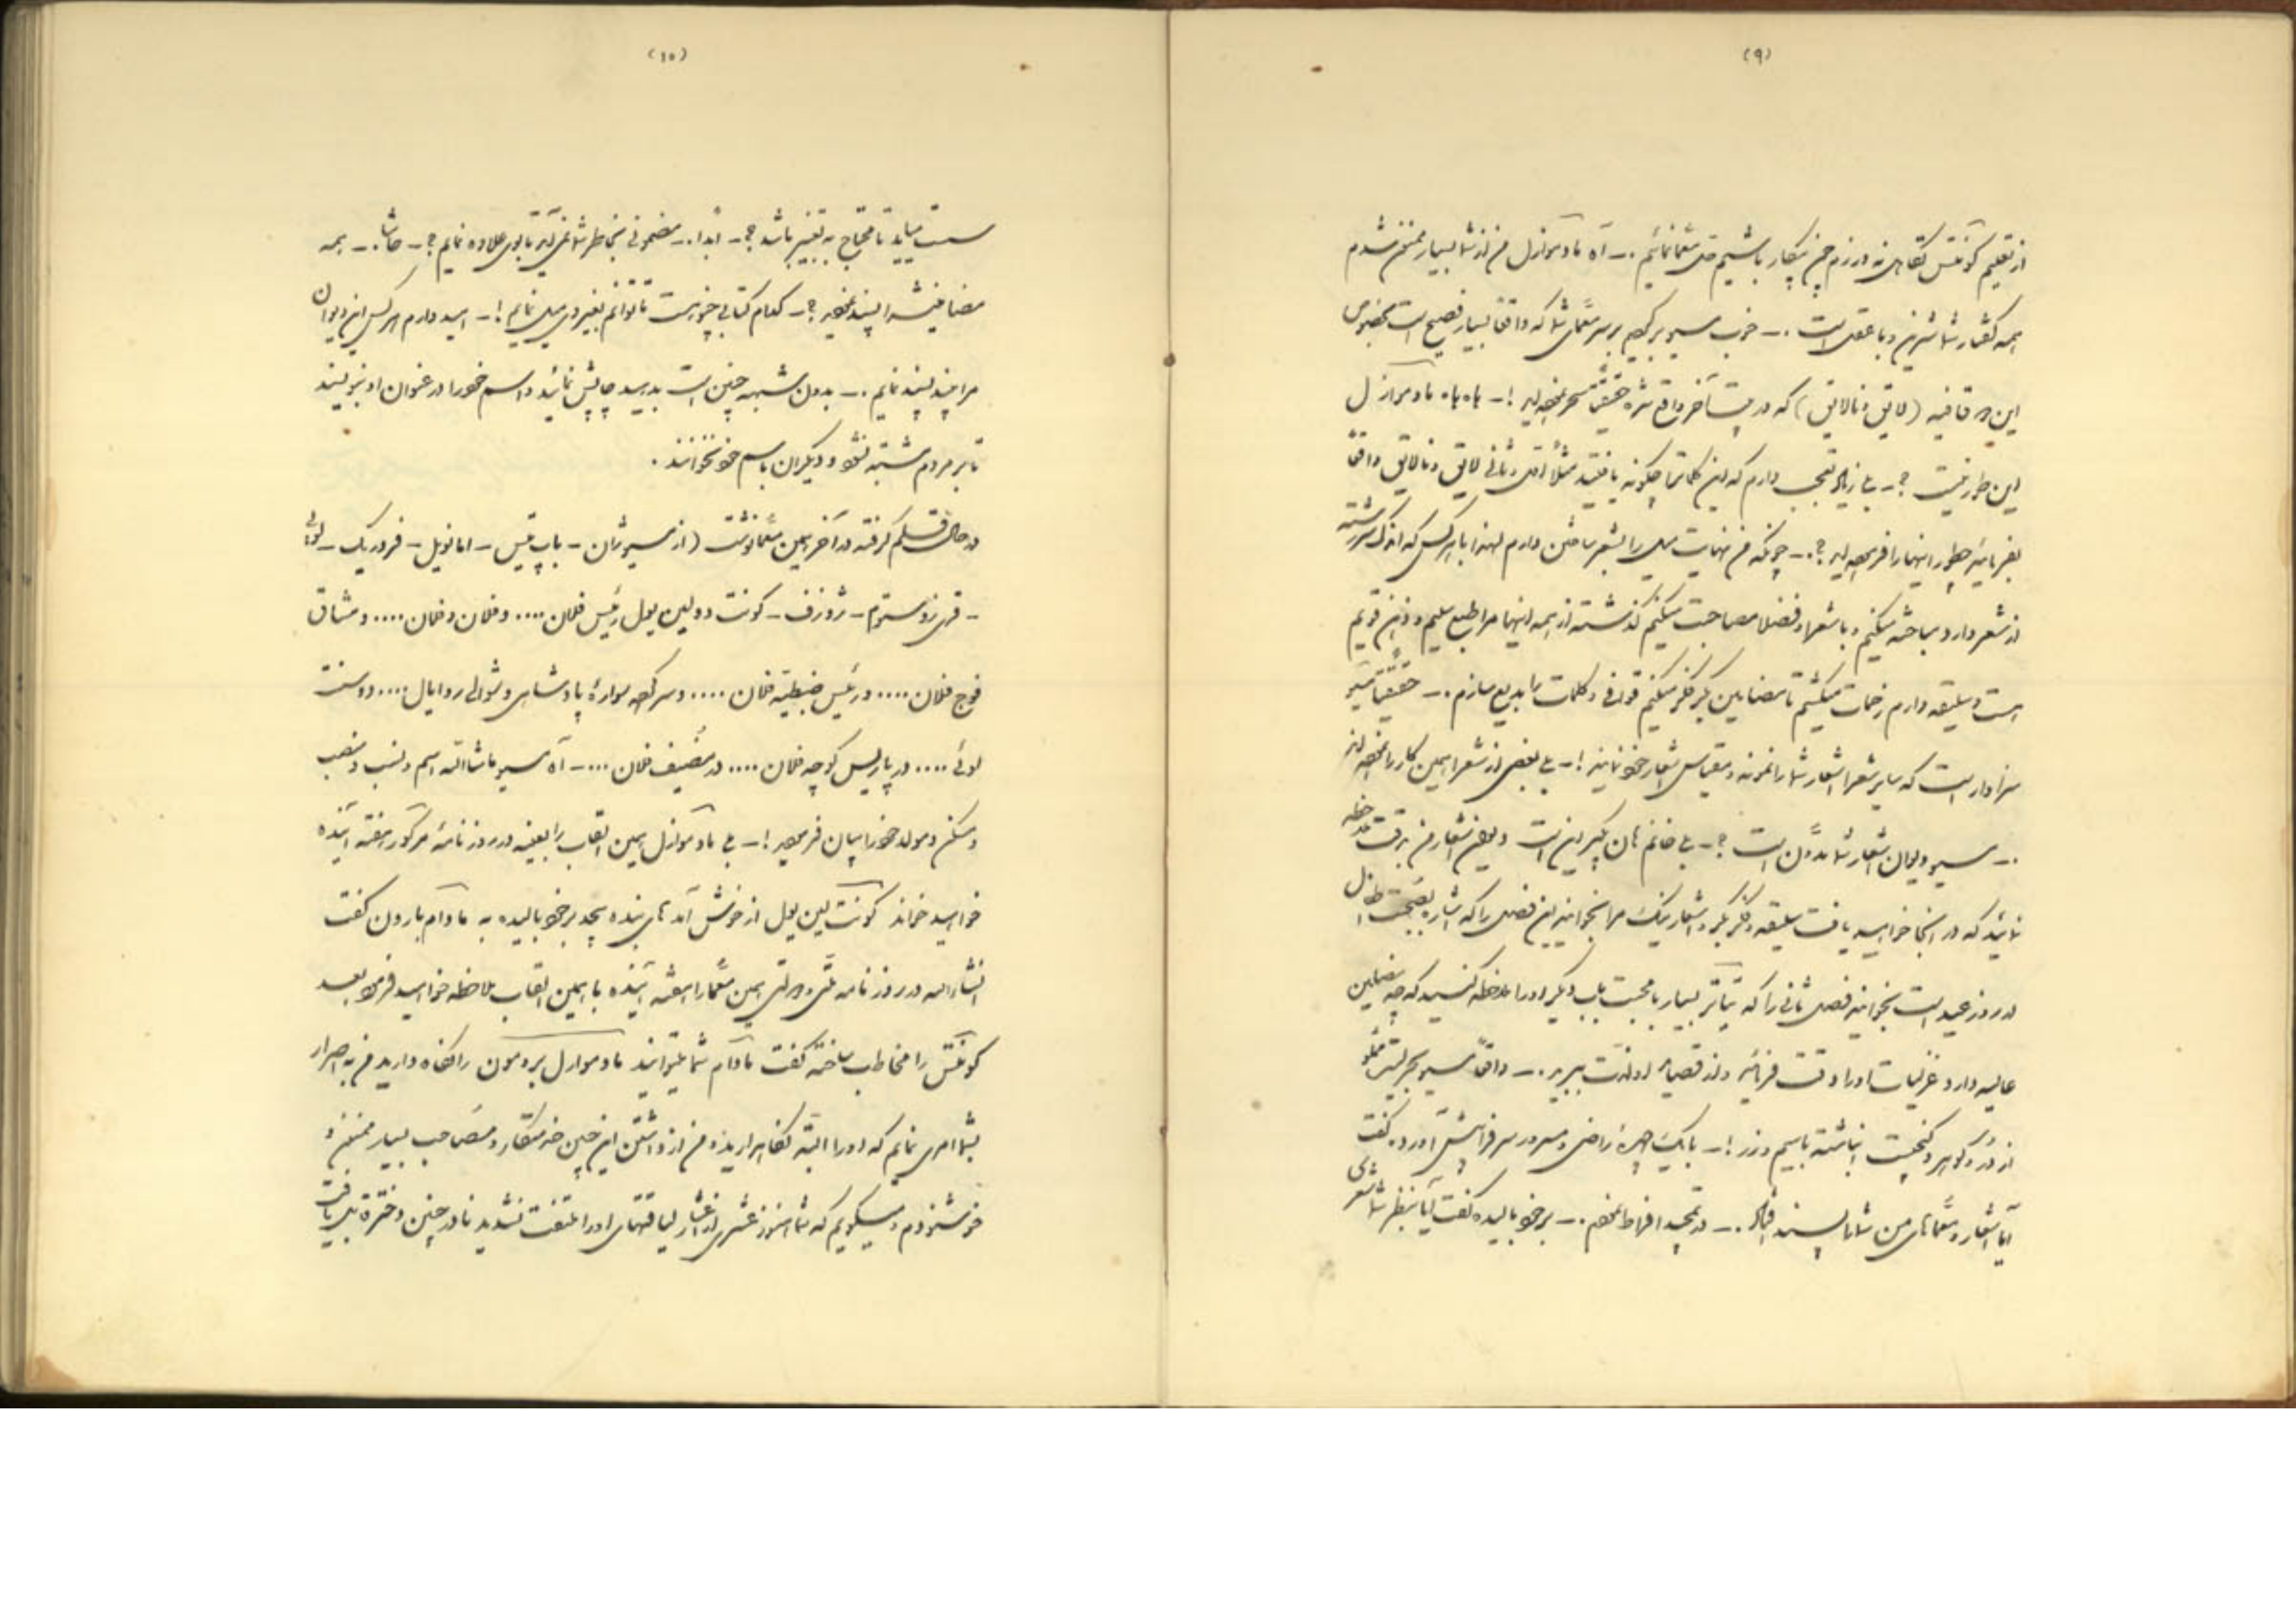 (۹)
از تعلیم کونتس در روز چنین بیکار باشیم حل معما نمائیم .ـ آه مادموازل من از شما بسیار ممنون شدم
همه گفتار شما شیرین و با عقل است .ـ خوب مسیو برگردیم بر سر معمای شما که واقعا بسیار فصیح است بخصوص
این دو قافیه (لایق و نالایق) که در بیت آخر واقع شده حقیقتا سحر نموده‌اید !ـ به به مادموازل
این طور نیست ؟ـ بلی زیاد تعجب دارم که این کلمات را چگونه یافتید مثلا اول و ثانی لایق و نالایق واقعا
بفرمائید چطور اینها را فرموده‌اید ؟.ـ چونکه من نهایت میل را بشعر ساختن دارم لهذا با هر کس که اندک سررشته
از شعر دارد مباحثه میکنم و با شعرا و فضلا مصاحبت میکنم گذشته از همه اینها مرا طبع سلیم و ذهن قویم
است و سلیقه دارم زحمات میکشم تا مضامین بکر فکر میکنم قوافی و کلمات را بدیع سازم .ـ حقیقتا مسیو
سزاوار است که سایر شعرا اشعار شما را نمونه و مقیاس اشعار خود نمایند !ـ بلی بعضی از شعرا همین کار را نموده‌اند
.ـ مسیو دیوان اشعار شما مدون است ؟ـ بلی خانم هان بگیرید این است دیوان اشعار من بدقت ملاحظه
نمائید که در اینجا خواهید یافت سلیقه و فکر بکر و اشعار نیک مرا بخوانید این فصل را که
در روز عید است بخوانید فصل ثانی را که تیاتر بسیار با محبت باب دیگر او را ملاحظه کنید که چه مضامین
عالیه دارد غزلیات او را دقت فرمائید و از قصیده او لذت ببرید .ـ واقعا مسیو بحریست مملو
از در و گوهر و گنجیست انباشته با سیم و زر !ـ با یک چهره راضی و مسرور سر فرا پیش آورده گفت
آیا اشعار و معماهای من شما را پسند افتاد .ـ در تمجید افراط نمودم .ـ بر خود بالیده گفت آیا بنظر شما شعری
(۱۰)
سست میآید تا محتاج به تغییر باشد ؟ـ ابدا .ـ مضمونی بخاطر شما نمی‌آید تا بوی علاوه نمایم ؟ـ حاشا .ـ همه
مضامینش را پسند نمودید ؟ـ کدام کتابی خوبست تا توانم بغیر وی میل نمایم !ـ امید دارم هر کس این دیوان
مرا پسند نمایم .ـ بدون شبهه چنین است بدهید چاپش نمائید و اسم خود را در عنوان او بنویسید
تا بر مردم مشتبه نشود و دیگران باسم خود نخوانند .
در حال قلم گرفته در آخر همین معما نوشت (از مسیو ژان ـ باپ تیس ـ امانویل ـ فردریک ـ لوئی
ـ ژوزف ـ کونت دولین یول رئیس فلان .... و فلان و فلان .... و مشاق
فوج فلان .... و رئیس ضبطیه فلان .... و سرکرده سواره پادشاهی و شوالر روایال .... دوسنت
لوئی .... در پاریس کوچه فلان .... در مضیف فلان ....ـ آه مسیو ماشاالله اسم و نسب و منصب
و مسکن و مولد خود را بیان فرمودید !ـ بلی مادموازل همین القاب را بعینه در روزنامه مرکور هفته آینده
خواهید خواند کونت لین یول از خوش آمدهای بنده بیحد بر خود بالیده به مادام بارون گفت
انشاءالله در روزنامه همین معما را هفته آینده با همین القاب ملاحظه خواهید فرمود بعد
کونتس را مخاطب ساخته گفت مادام شما میتوانید مادموازل بردمون را نگاه دارید من به اصرار
بشما امر می نمایم که او را البته نگاهدارید من از داشتن این چنین خدمتکار و مصاحب بسیار ممنون و
خوشنودم و میگویم که شما هنوز عشری از اعشار لیاقتهای او را ملتفت نشدید نادر چنین دختره میتوان یافت